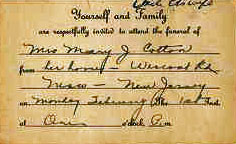 Yourself and Family
are respectfully invited to attend the funeral of
Mrs Mary J Cotton
from her home - Wescoat Rd
New Jersey
on Monday February the 1st
at One o'clock P.m